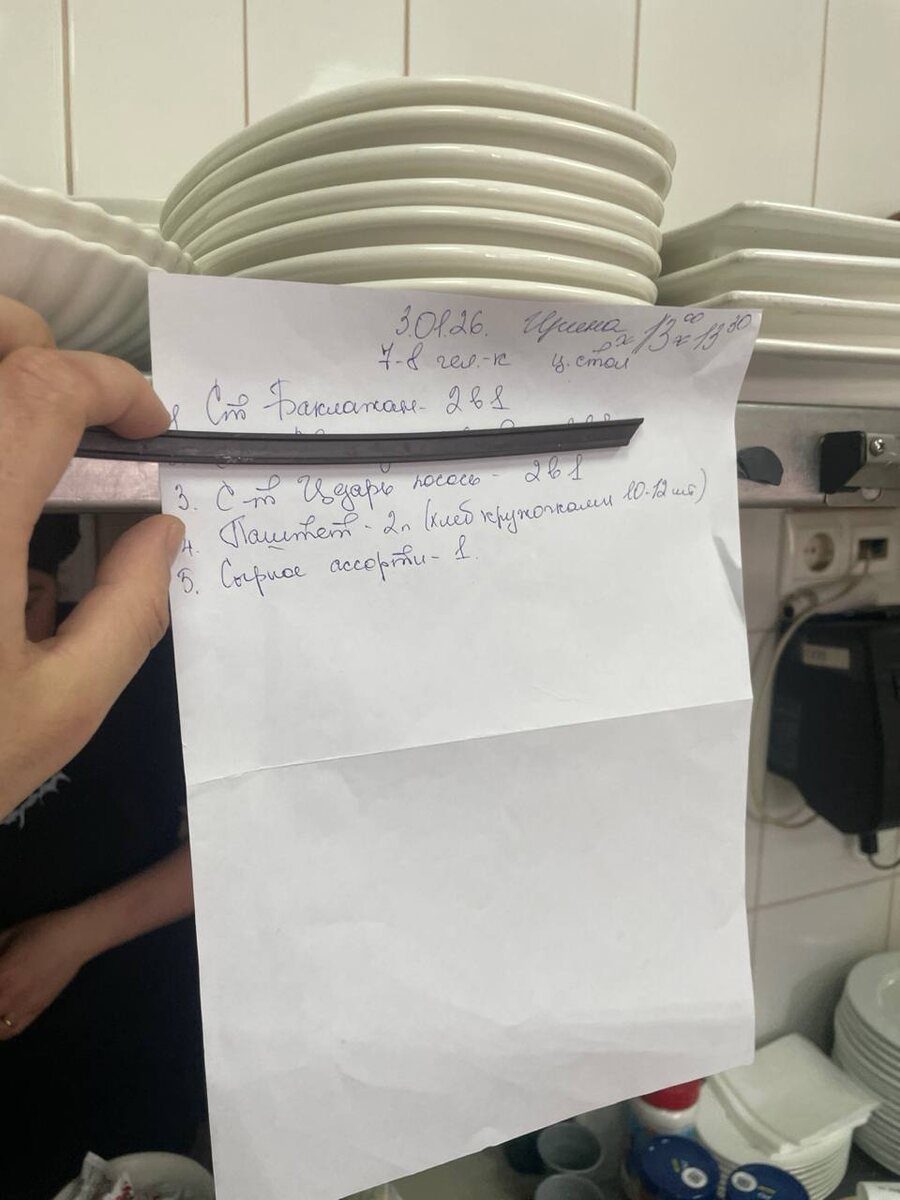 3.01.26. Ирина к 13⁰⁰ к 13³⁰
7-8 чел-к ц. стол
1. Ст Баклажан - 2 в 1
3. С-т Цезарь лосось - 2 в 1
4. Паштет - 2п (хлеб кружочками 10-12 шт)
5. Сырное ассорти - 1.